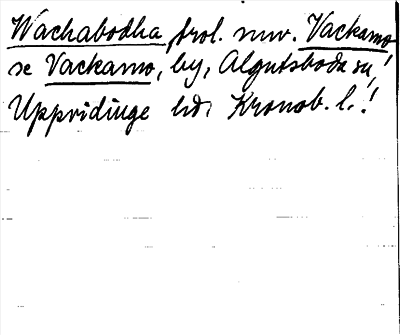 Wachabodha frol. nuv. Vackamo
se Vackamo, by, Algutsboda sn,
Uppvidinge hd, Kronob. l.!